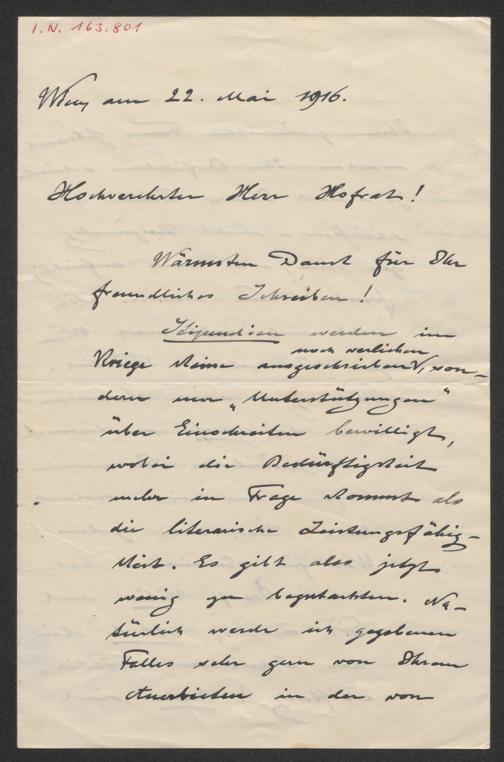 I.N. 163.801
Wien am 22. Mai 1916.
Hochverehrter Herr Hofrat!
Wärmsten Dank für Ihr
freundliches Schreiben!
Stipendien werden im
noch verliehen
Kriege keine ausgeschrieben, son-
dern nur „Unterstützungen"
über Einschreiten bewilligt,
wobei die Bedürftigkeit
mehr in Frage kommt als
die literarische Leistungsfähig-
keit. Es gibt also jetzt
wenig zu begutachten. Na-
türlich werde ich gegebenen
Falles sehr gern von Ihrem
Anerbieten in der von